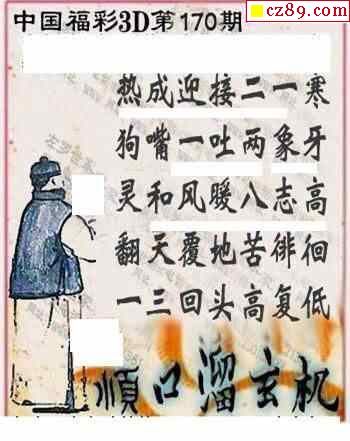 cz89.com
中国福彩3D第170期
热成迎接二一寒
狗嘴一吐两象牙
灵和风暖八志高
翻天覆地苦徘徊
一三回头高复低
顺口溜玄机